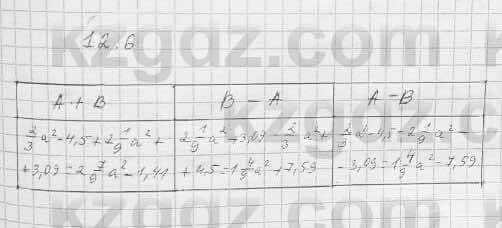 kzgdz.com
12.6
A + B
B - A
A - B
2/3 a² - 4,5 + 2 1/9 a² +
+ 3,09 = 2 7/9 a² - 1,41
2 1/9 a² + 3,09 - 2/3 a² +
+ 4,5 = 1 4/9 a² + 7,59
2/3 a² - 4,5 - 2 1/9 a² -
- 3,09 = 1 4/9 a² - 7,59